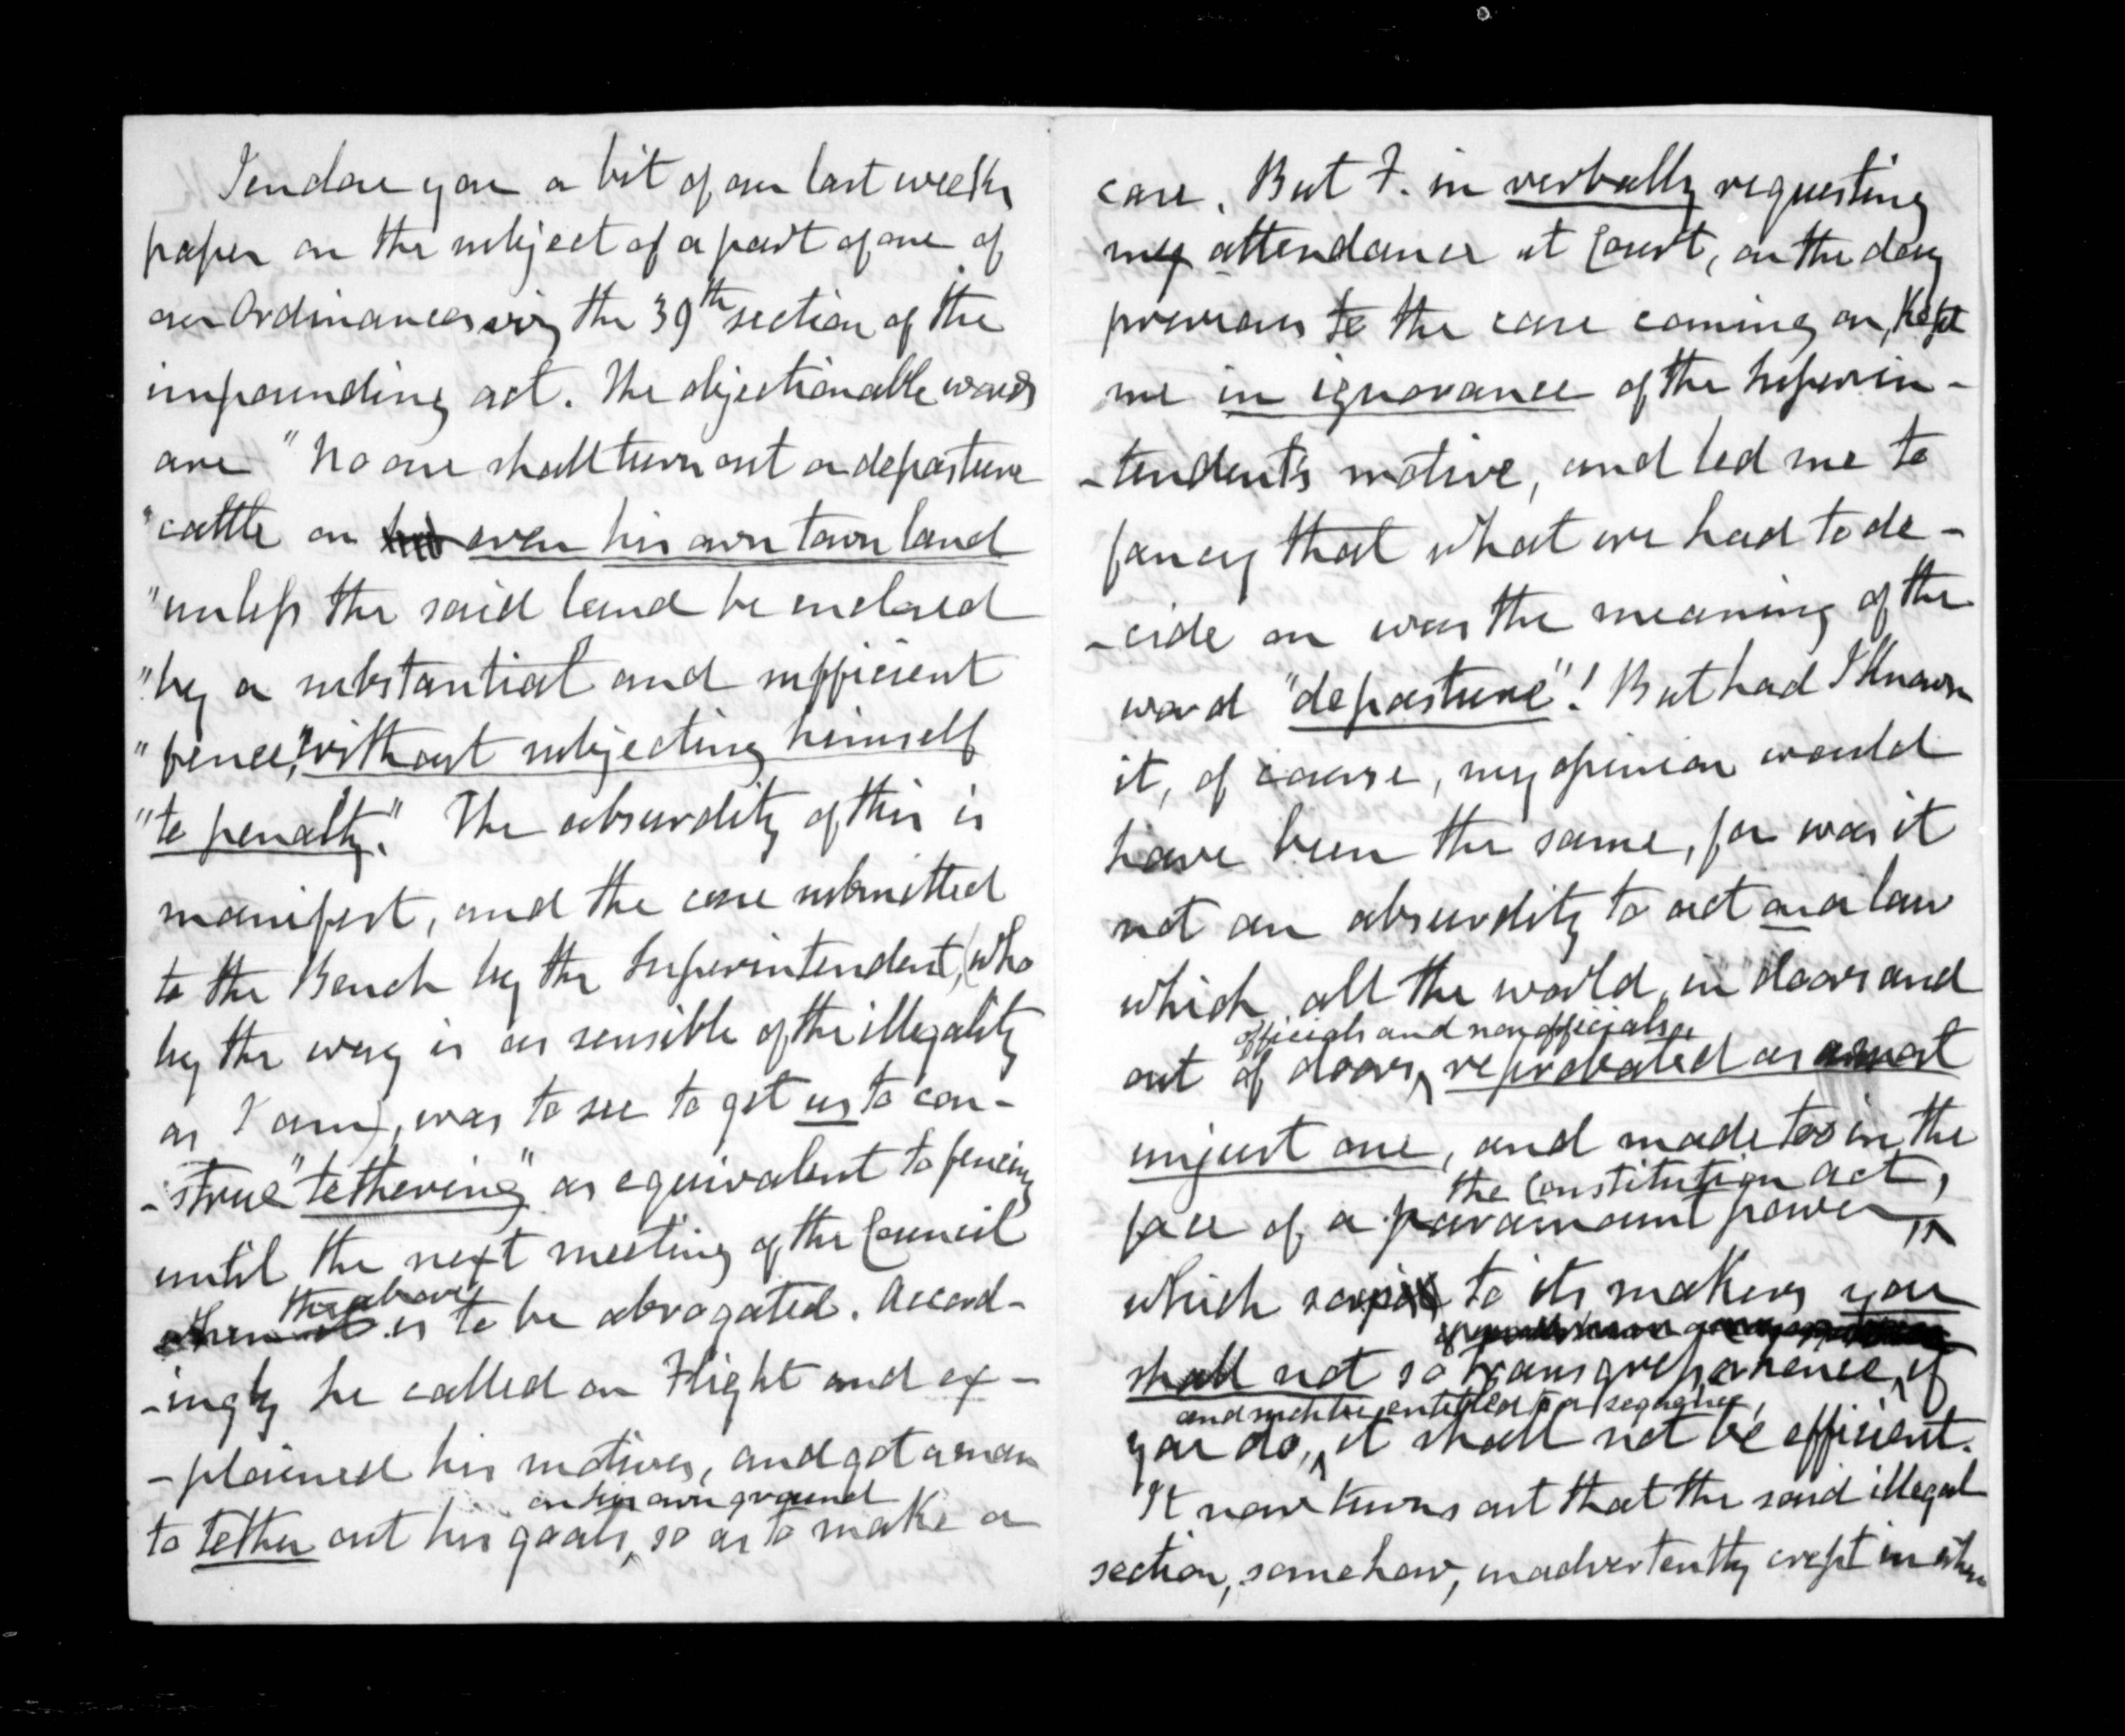 I enclose you a bit of our last weeks
paper on the subject of a part of one of
our Ordinances viz the 39th section of the
impounding act. The objectionable words
are "No one shall turn out or depasture
"cattle on even his own town land
"unless the said land be enclosed
"by a substantial and sufficient
"fence," without subjecting himself
"to penalty." The absurdity of this is
manifest, and the case submitted
to the Bench by the Superintendent, (who
by the way is as sensible of the illegality
as I am), was to see to get us to con-
-strue "tethering" as equivalent to fencing
until the next meeting of the Council
the above
when it is to be abrogated. Accord-
-ingly he called on Flight and ex-
-plained his motives, and got a man
on his own ground
to tether out his goats, so as to make a
case. But F. in verbally requesting
my attendance at Court, on the day
previous to the case coming on, kept
me in ignorance of the Superin-
-tendent's motive, and led me to
fancy that what we had to de-
-cide on was the meaning of the
word "depasture"! But had I known
it, of course, my opinion would
have been the same, for was it
not an absurdity to act on a law
which all the world, in doors and
officials and non officials,
out of doors, reprobated as a most
unjust one, and made too in the
the Constitution act,
face of a paramount power
which says to its makers you
shall not so transgress, hence, if
you do, it shall not be efficient.
It now turns out that the said illegal
section, somehow, inadvertently crept in when